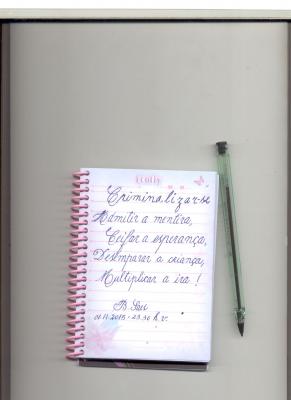 Ecolly
Criminalizar-se
Admitir a mentira,
Ceifar a esperança,
Desamparar a criança,
Multiplicar a ira !
01.11.2015 - 23.30 h.v.